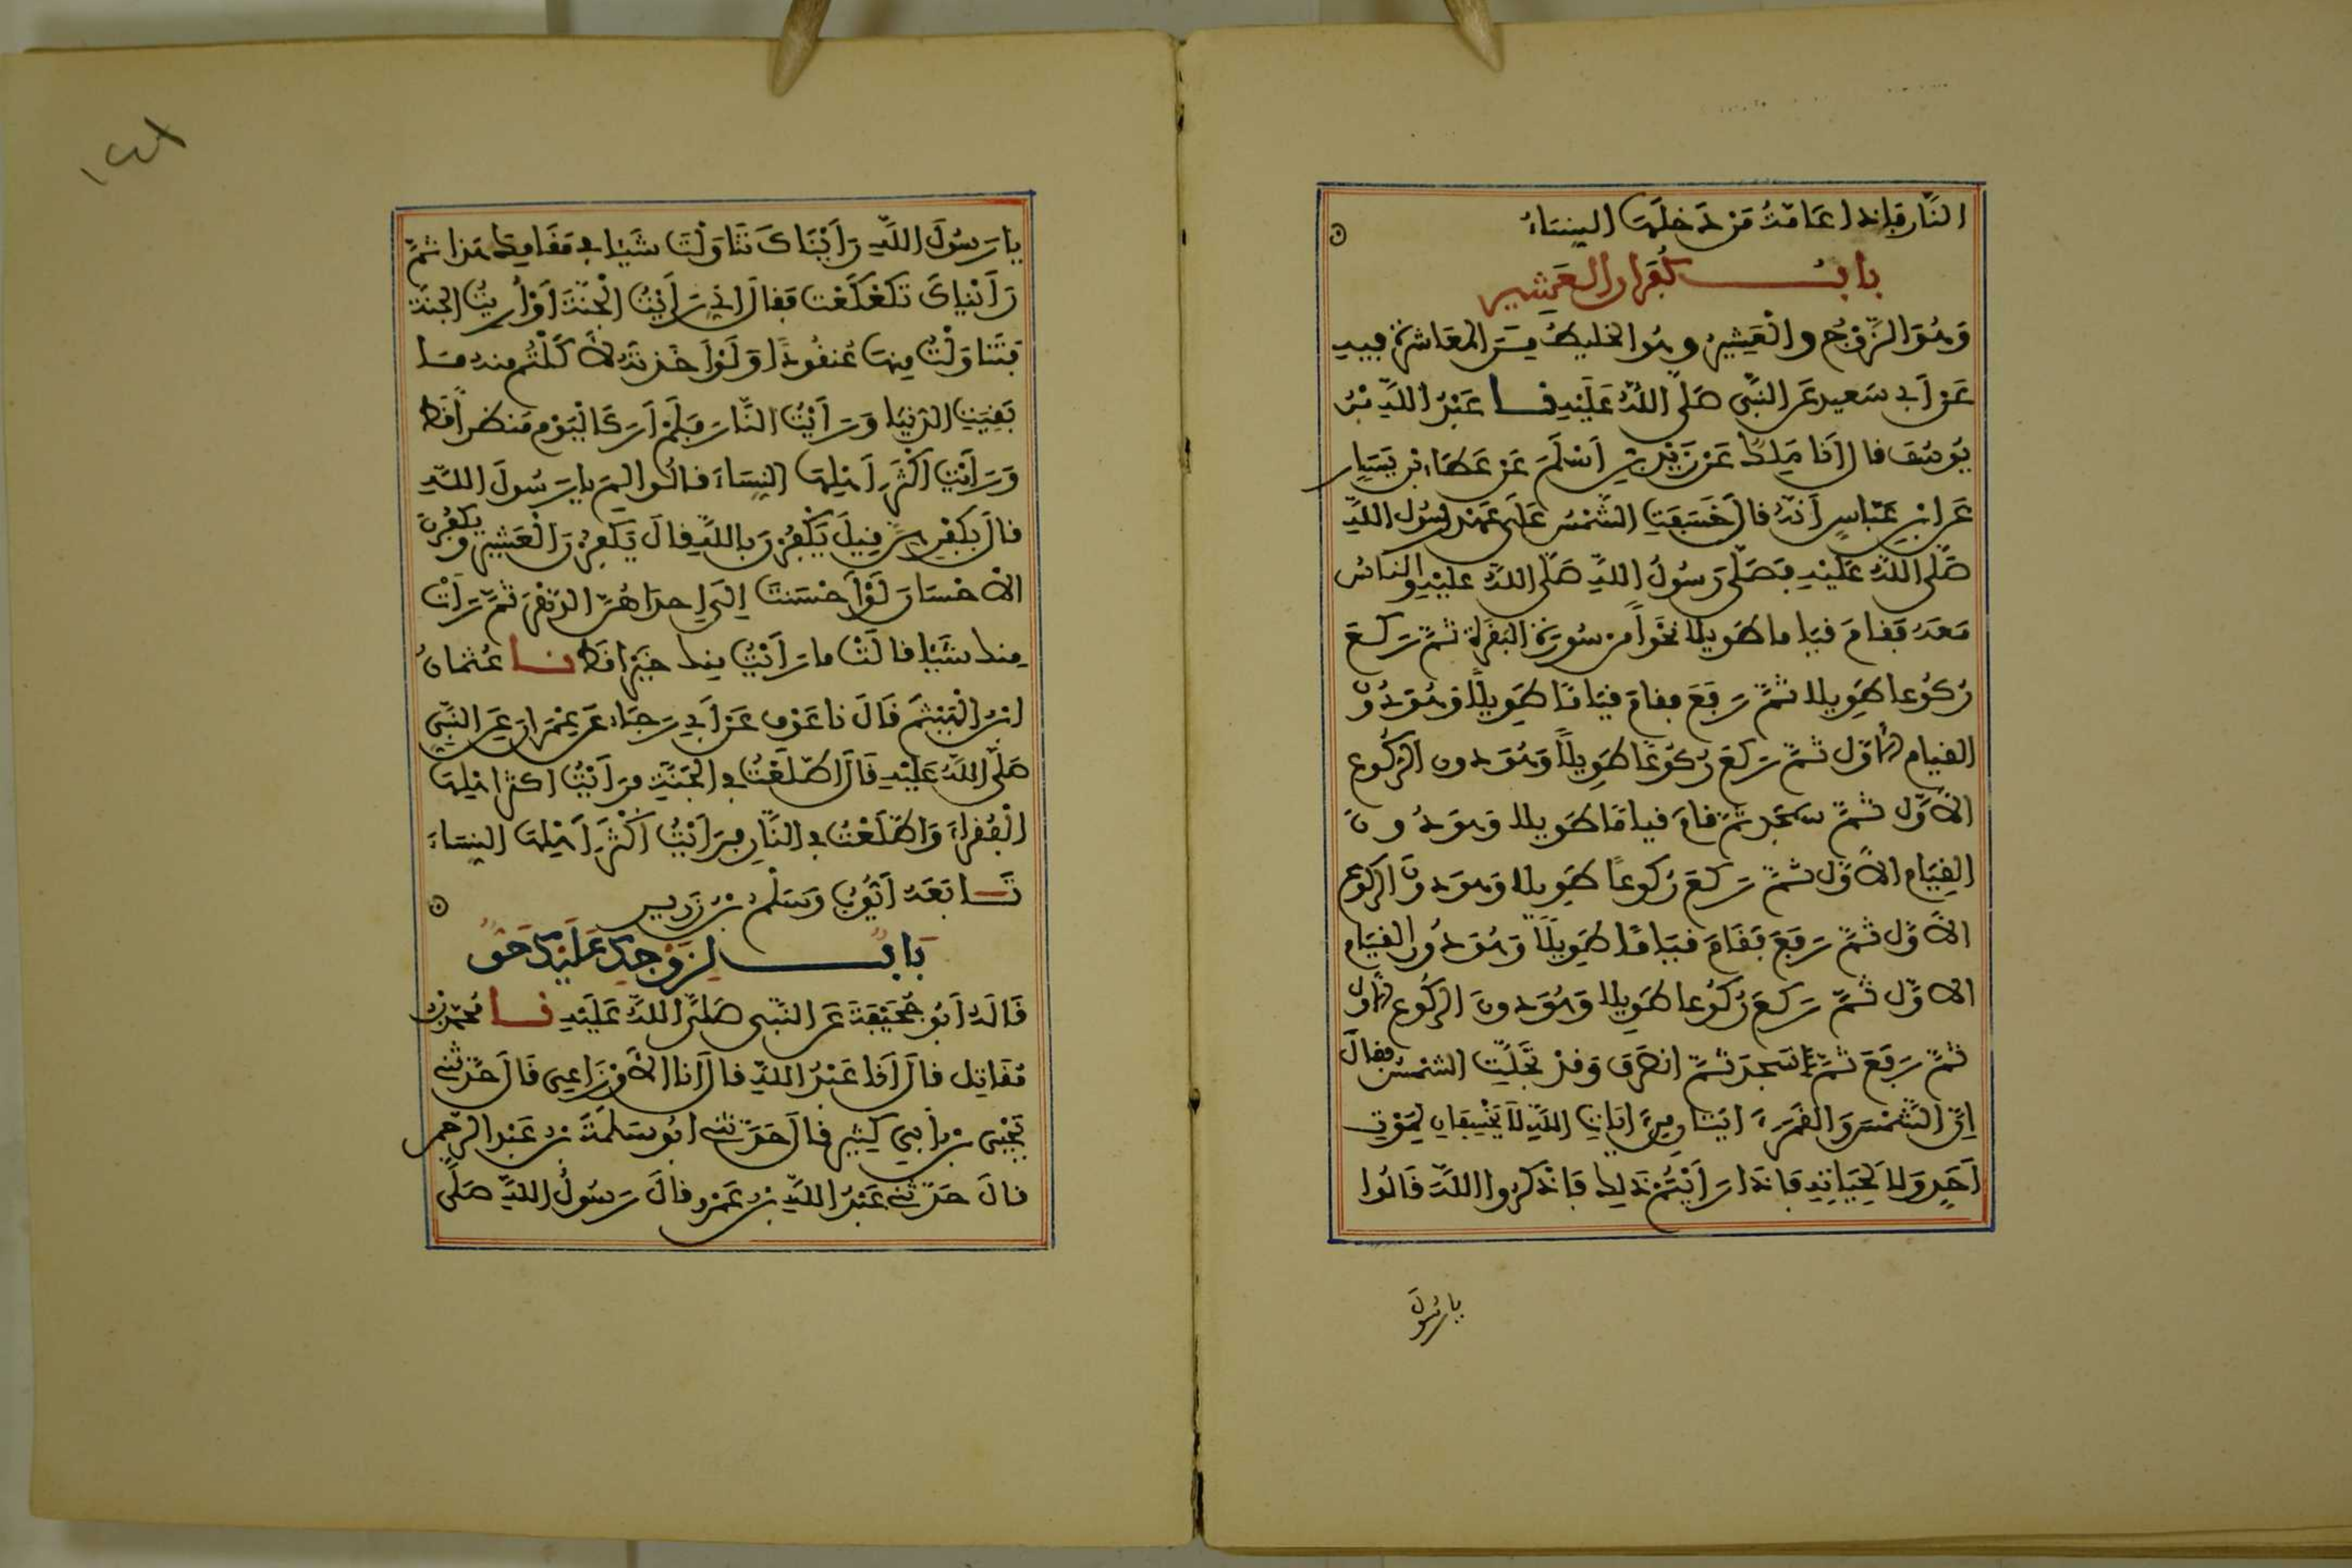 النَّار فإذا عَامّةُ مَن دَخلَها النِساءُ
بابُ كُفران العَشِير
وَهُوَ الزَّوْجُ والْعَشِيرُ وهُو الخليطُ مِنَ المُعَاشَرَة فيه
عَن أبي سَعيد عَن النَّبِّي صَلى اللهُ عَلَيْهِ نا عَبْدُ اللَّهِ بْنُ
يُوسُفَ قال أنَا مَلِكٌ عَن زَيْدِ بْنِ أَسْلَمَ عَن عَطَاءِ بْنِ يَسَارٍ
عَن ابْنِ عَبّاسٍ أنَّهُ قال خَسَفَتِ الشَّمْسُ عَلَى عَهْدِ رَسُول اللَّهِ
صَلَّى اللَّهُ عَلَيْهِ فَصَلَّى رَسُولُ اللَّهِ صَلَّى اللَّهُ عليْهِ والناسُ
مَعَهُ فَقامَ قيَاما طَويلا نَحْواً من سُورَةِ البَقَرَة ثمَّ رَكعَ
رُكُوعا طَوِيلا ثمَّ رَفَعَ فقامَ قيَامًا طَوِيلًا وَهُوَ دُونَ
القيام الأول ثمَّ رَكَعَ رُكُوعًا طَوِيلاً وَهُوَ دون الرُّكُوع
الأَوَّل ثمَّ سَجَد ثمَّ قامَ قيامًا طَويلا وَهوَ دُونَ
القِيَام الأوَّل ثمَّ رَكعَ رُكوعًا طَوِيلا وَهوَ دونَ الركوع
الأوَّل ثمَّ رَفَعَ فَقَامَ قيَامًا طَوِيلًا وَهُوَ دُونَ القيَام
الاوَّل ثمَّ رَكعَ رُكُوعا طَوِيلا وَهُوَ دونَ الرُّكُوع الأول
ثمَّ رَفَعَ ثمَّ سَجدَ ثمَّ انصَرَفَ وَقدْ تَجَلَّتِ الشمْسُ فقالَ
إنَّ الشَّمْسَ وَالقَمَرَ ءَايَتَانِ مِنَ ءايَاتِ اللَّهِ لاَ يَخْسِفَانِ لِمَوْتِ
أَحَدٍ وَلا لِحَيَاتِهِ فَإذَا رَأَيْتُمْ ذَلِكَ فَاذْكُرُوا اللَّهَ قَالُوا
يا رسُولَ
١٤٨
يا رَسُولَ اللَّهِ رَأَيْنَاكَ تَنَاوَلْتَ شَيْئا في مَقَامِكَ هَذا ثمَّ
رَأَيْنَاكَ تَكَعْكَعْتَ فقالَ إني رَأيْتُ الْجَنَّةَ أوْ أُرِيتُ الجنَّةَ
فَتَنَاوَلْتُ مِنها عُنقُودًا وَلَوْ أَخَذتُهُ لأَكَلْتُم منهُ مَا
بَقِيَتِ الدُّنيَا وَرَأيْتُ النَّارَ فَلَمْ أرَ كَالْيَوْم مَنظَراً قَط
وَرَأَيْتُ أَكْثَرَ أَهْلِهَا النِسَاءَ قالُوا لِمَ يا رَسُولَ اللَّهِ
قالَ بكُفْرِهِنَّ قِيلَ يَكْفُرْنَ باللَّهِ قالَ يَكْفُرْنَ الْعَشِير وَيَكْفُرْنَ
الاحْسَانَ لَوْ أحْسَنتَ إلى إحدَاهُنَّ الدَّهْرَ ثمَّ رَأَتْ
مِنك شَيْئا قالَتْ ما رَأَيْتُ مِنك خَيْرًا قَطُّ نا عُثمانُ
ابْنُ الْهَيْثَمِ قَالَ نا عَوْف عَنْ أبي رَجَاءٍ عَن عِمْرَانَ عَنِ النَّبِيّ
صَلَّى اللَّهُ عَلَيْهِ قَالَ اطَّلَعْتُ في الْجَنَّةِ فرَأَيْتُ أكثر أهْلِهَا
الْفُقَراءَ وَاطَّلَعْتُ في النَّارِ فرَأَيْتُ أَكْثَرَ أَهْلِهَا النِسَاءَ
تَابَعَهُ أَيُّوبُ وَسَلْمُ بْنُ زَرِير
بَابٌ لِزَوْجِكَ عَلَيْكَ حَقٌّ
قَالَهُ أبُو جُحَيْفَةَ عَن النَّبِي صَلَّى اللَّهُ عَلَيْهِ نا مُحَمّد بْنُ
مُقَاتِل قالَ أنا عَبْدُ اللَّهِ قالَ أنا الأَوْزَاعِي قَالَ حَدَّثني
يَحْيَى بْنُ أَبِي كَثِير قالَ حَدَّثني أبُو سَلَمَةَ بْنُ عَبْدِ الرَّحْمَن
قالَ حَدَّثَنِي عَبْدُ اللَّهِ بْنُ عَمْرو قالَ رَسُولُ اللَّهِ صَلَّى